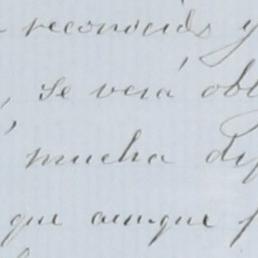 reconocido y
, se verá obl
mucha dif
que aunque